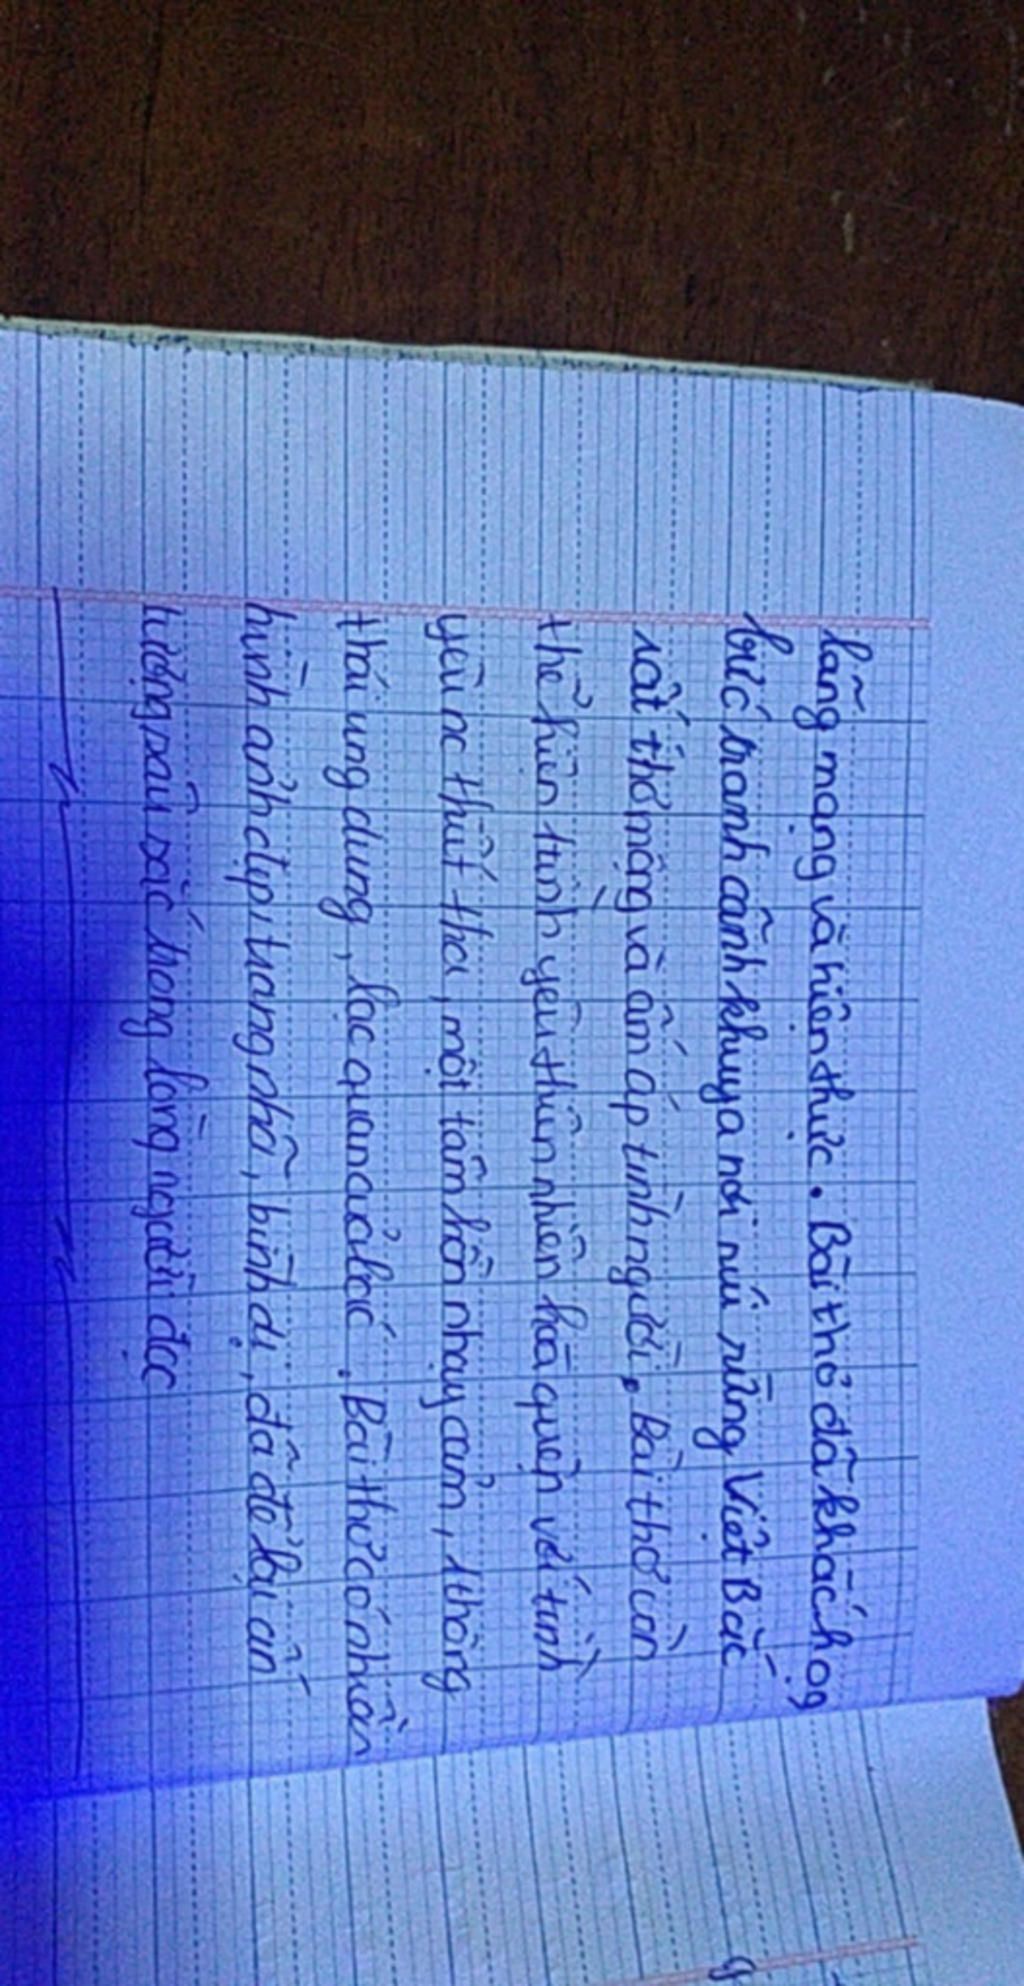 lãng mạng và hiện thực. Bài thơ đã khắc họg
bức tranh cảnh khuya nơi núi rừng Việt Bắc
rất thơ mộng và ấm áp tình người. Bài thơ còn
thể hiện tình yêu thiên nhiên hoà quện với tình
yêu nc thiết tha, một tâm hồn nhạy cảm, 1 thông
thái ung dung, lạc quan của bác. Bài thơ có nhiều
hình ảnh đẹp, trang nhã, bình dị, đã để lại ấn
tượng sâu sắc trong lòng người đọc